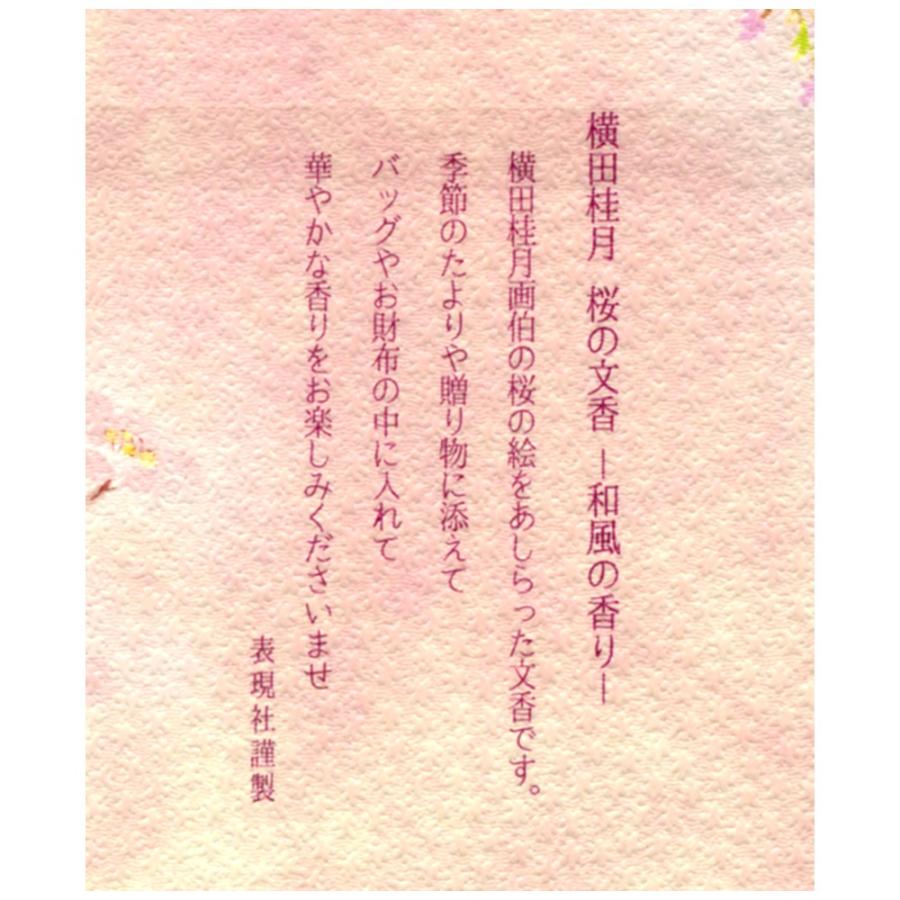 横田桂月 桜の文香 ―和風の香り―
横田桂月画伯の桜の絵をあしらった文香です。
季節のたよりや贈り物に添えて
バッグやお財布の中に入れて
華やかな香りをお楽しみくださいませ
表現社謹製